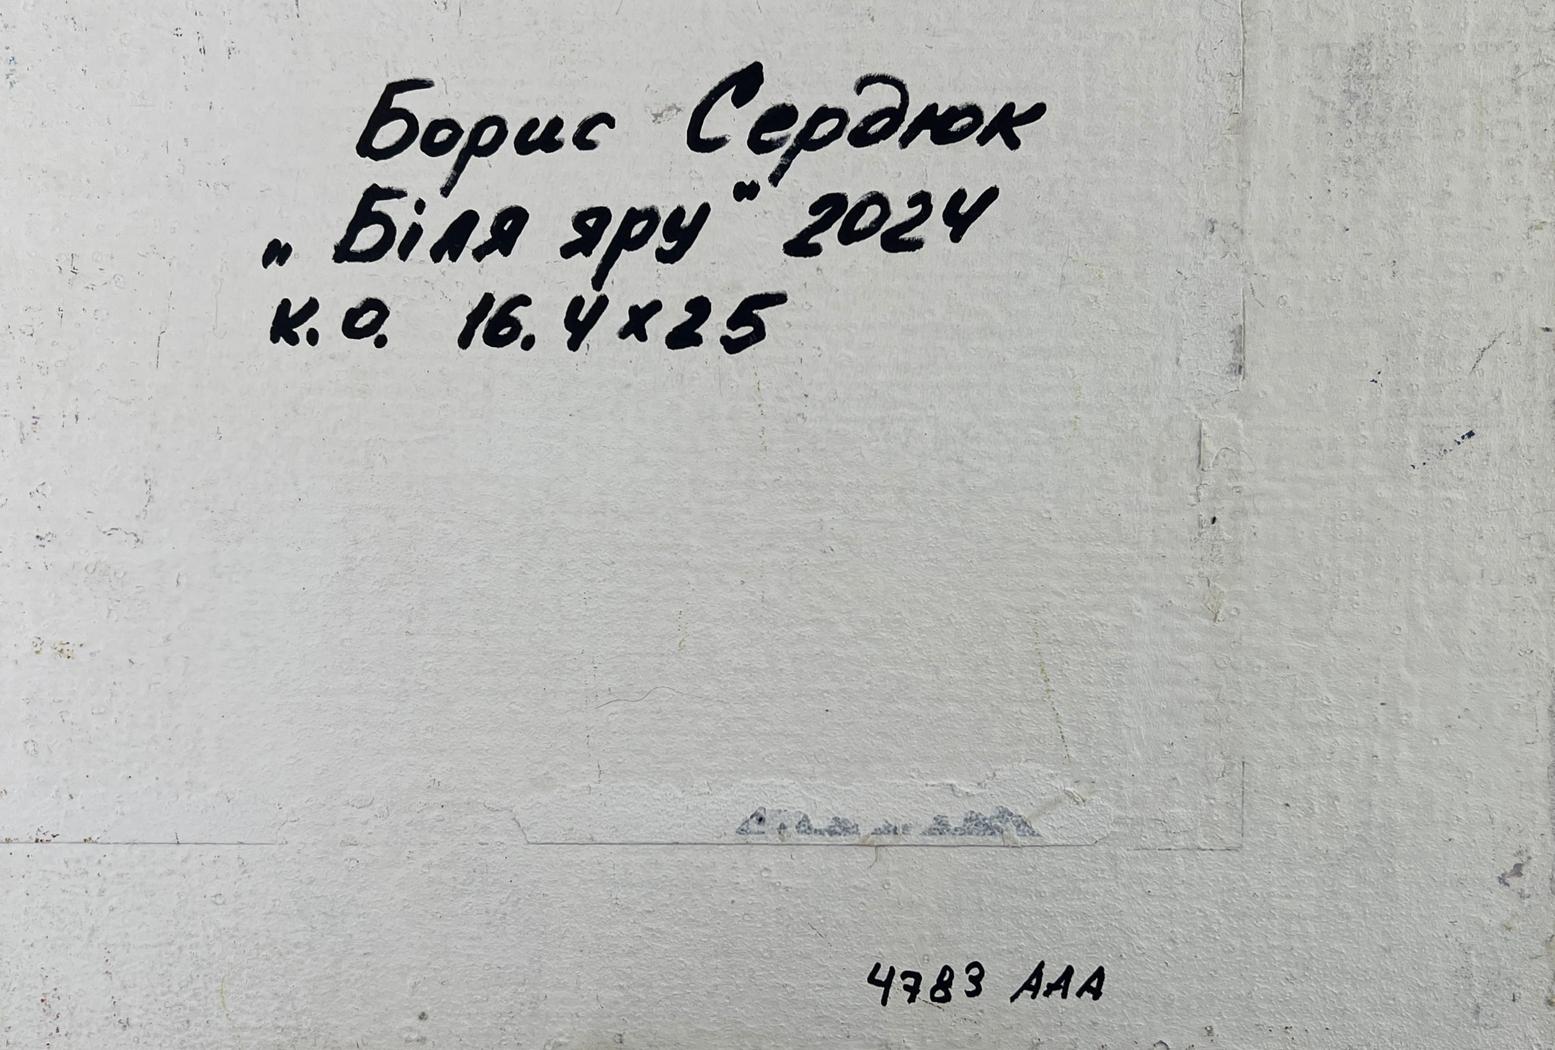 Борис Сердюк
„Біля яру" 2024
к.о. 16.4x25
4783 AAA